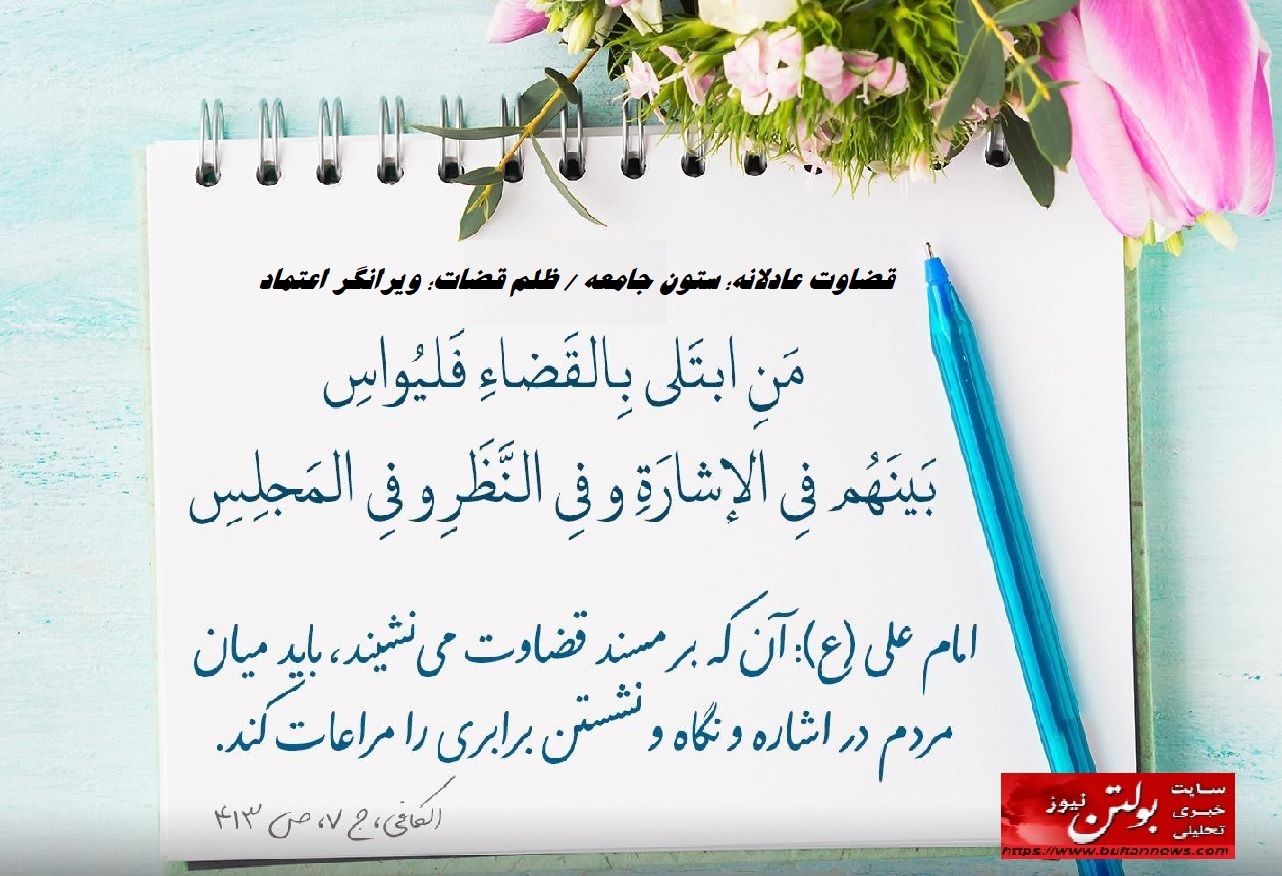 قضاوت عادلانه؛ ستون جامعه / ظلم قضات؛ ویرانگر اعتماد
مَنِ ابتَلی بِالقَضاءِ فَلیُواسِ
بَینَهُم فِی الإشارَةِ و فِی النَّظَرِ و فِی المَجلِسِ
امام علی (ع): آن که بر مسند قضاوت می‌نشیند، باید میان
مردم در اشاره و نگاه و نشستن برابری را مراعات کند.
الکافی، ج ۷، ص ۴۱۳
سایت
خبری
تحلیلی
بولتن نیوز
https://www.bultannews.com